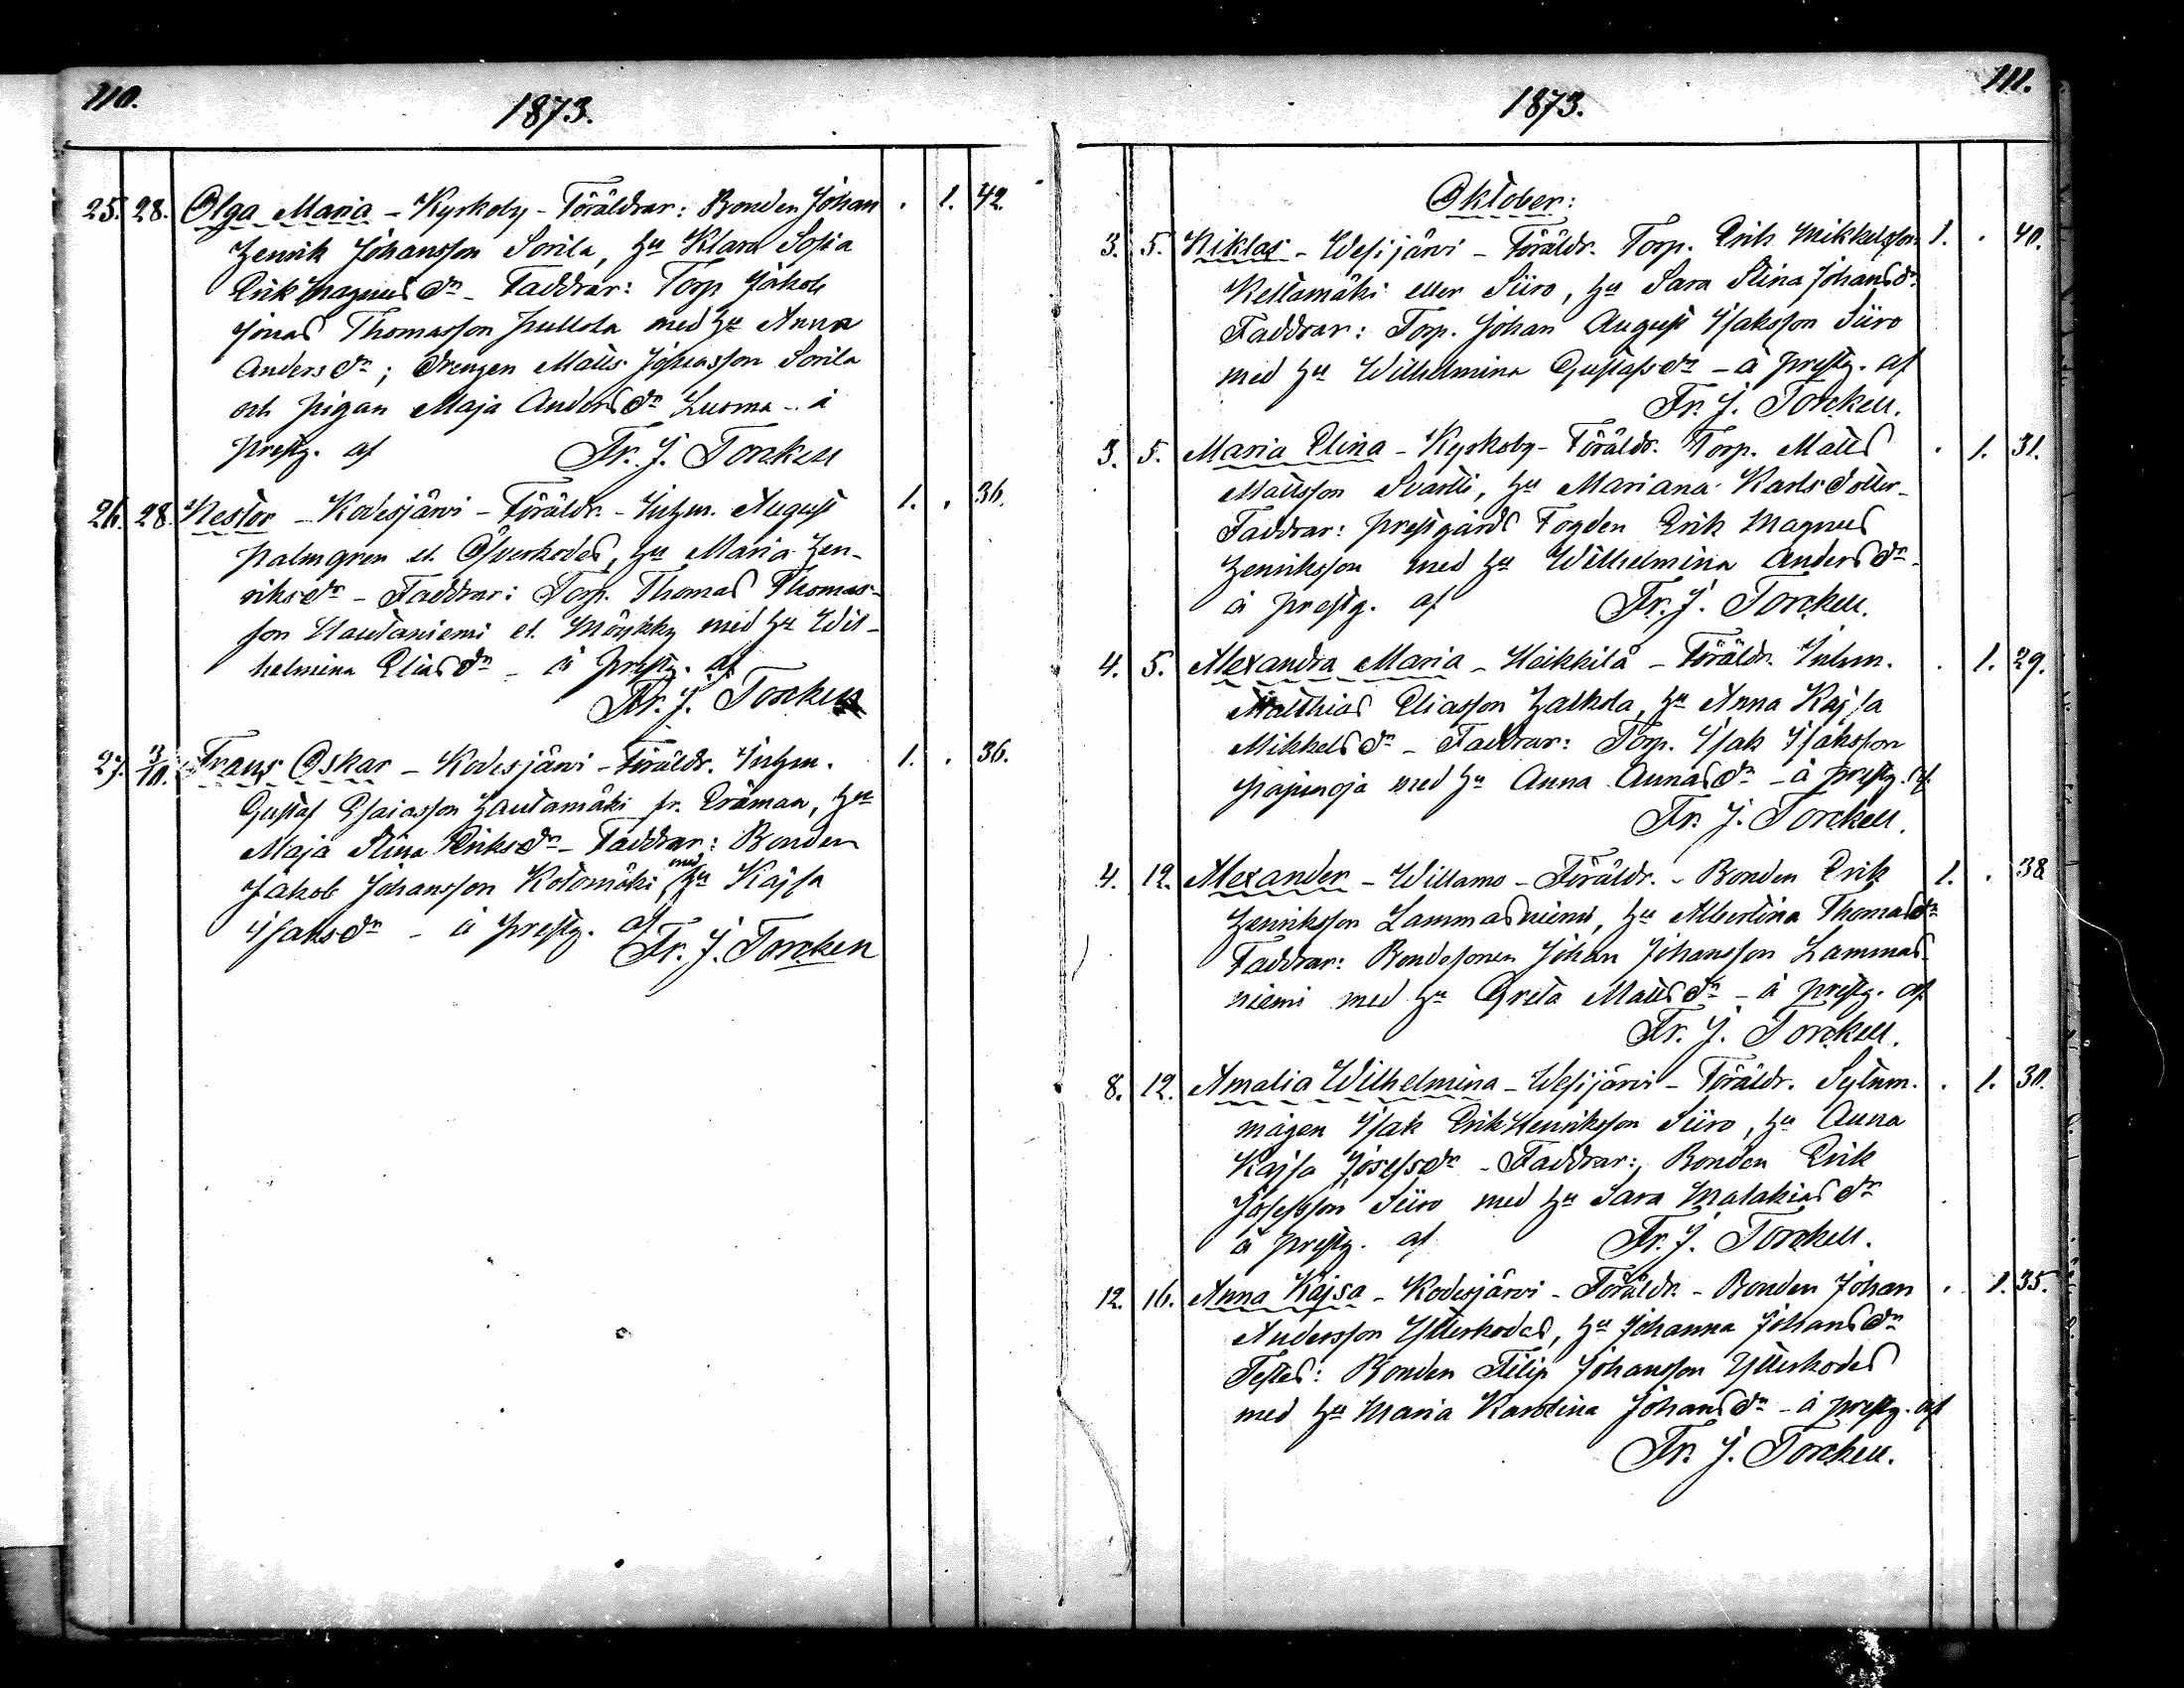 110.
1873.
25. 28. Olga Maria - Kyrkoby - Föräldrar: Bonden Johan . 1. 42.
Henrik Johansson Sorila, Hu Klara Sofia
Erik Magnus dr - Faddrar: Torp Jakob
Jonas Thomasson Pullola med Hu Anna
Anders dr; Drengen Matts Johansson Sorila
och pigan Maja Anders dr Luoma - å
prestg. af Fr. J. Torckell
26. 28. Nestor - Kodesjärvi - Föräldr. - Inhm. August 1. . 36.
Palmgren el. Öfverkodes, Hu Maria Hen-
riks dr - Faddrar: Torp. Thomas Thomas-
son Hautaniemi el. Möykky med Hu Wil-
helmina Elias dr - å prestg. af
Fr. J. Torckell
27. 3/10. Frans Oskar - Kodesjärvi - Föräldr. Inhm. 1. . 36.
Gustaf Esaiasson Hautamäki fr. Eräman, Hu
Maja Stina Eriks dr - Faddrar: Bonden
Jakob Johansson Kotomäki med Hu Kajsa
Isaks dr - å prestg. af
Fr. J. Torcken
111.
1873.
Oktober:
3. 5. Niklas - Wesijärvi - Föräldr. Torp. Erik Mikkelsson 1. . 40.
Keltamäki eller Siiro, Hu Sara Stina Johans dr
Faddrar: Torp. Johan August Isaksson Siiro
med Hu Wilhelmina Gustafs dr - å prestg. af
Fr. J. Torckell.
3. 5. Maria Elina - Kyrkoby - Föräldr. Torp. Matts . 1. 31.
Mattsson Svartti, Hu Mariana Karls dotter -
Faddrar: prestgårds Fogden Erik Magnus
Henriksson med Hu Wilhelmina Anders dr -
å prestg. af Fr. J. Torckell.
4. 5. Alexandra Maria - Heikkilä - Föräldr. Inhm. . 1. 29.
Matthias Eliasson Halkola, Hu Anna Kajsa
Mikkels dr - Faddrar: Torp. Isak Isaksson
Pajunoja med Hu Anna Annas dr - å prestg. af
Fr. J. Torckell.
4. 12. Alexander - Willamo - Föräldr. - Bonden Erik 1. . 38
Henriksson Lammasniemi, Hu Albertina Thomas dr
Faddrar: Bondesonen Johan Johansson Lammas-
niemi med Hu Greta Matts dr - å prestg. af
Fr. J. Torckell.
8. 12. Amalia Wilhelmina - Wesijärvi - Föräldr. Sytnm. . 1. 30.
mågen Isak Erik Henriksson Siiro, Hu Anna
Kajsa Josefs dr - Faddrar: Bonden Erik
Josefsson Siiro med Hu Sara Malakias dr
å prestg. af Fr. J. Torckell.
12. 16. Anna Kajsa - Kodesjärvi - Föräldr. - Bonden Johan . 1. 35.
Andersson Ytterkodes, Hu Johanna Johans dr
Testes: Bonden Filip Johansson Ytterkodes
med Hu Maria Karolina Johans dr - å prestg. af
Fr. J. Torckell.